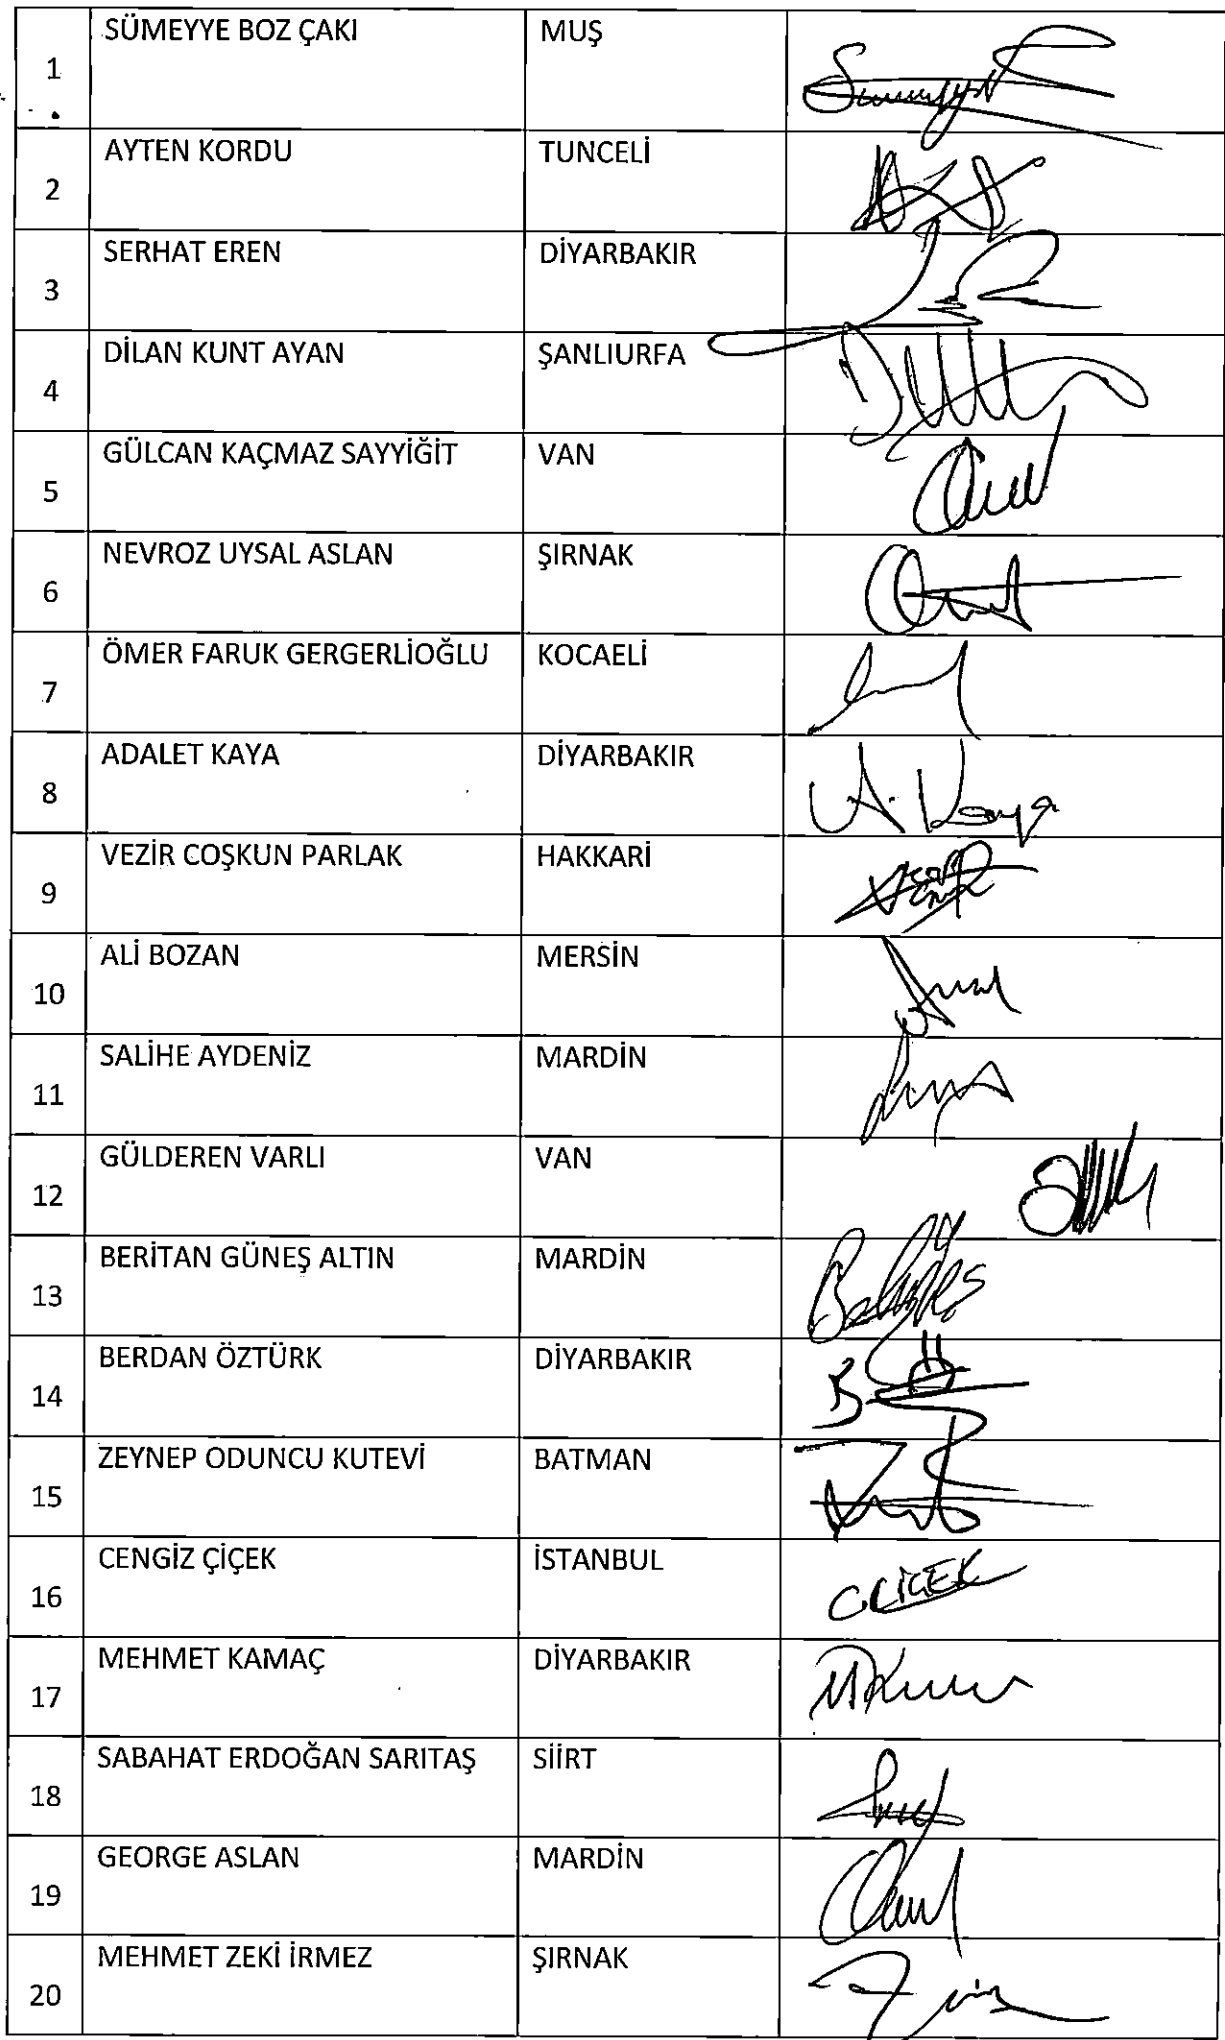 1 SÜMEYYE BOZ ÇAKI MUŞ
2 AYTEN KORDU TUNCELİ
3 SERHAT EREN DİYARBAKIR
4 DİLAN KUNT AYAN ŞANLIURFA
5 GÜLCAN KAÇMAZ SAYYİĞİT VAN
6 NEVROZ UYSAL ASLAN ŞIRNAK
7 ÖMER FARUK GERGERLİOĞLU KOCAELİ
8 ADALET KAYA DİYARBAKIR A. Kaya
9 VEZİR COŞKUN PARLAK HAKKARİ
10 ALİ BOZAN MERSİN
11 SALİHE AYDENİZ MARDİN
12 GÜLDEREN VARLI VAN
13 BERİTAN GÜNEŞ ALTIN MARDİN
14 BERDAN ÖZTÜRK DİYARBAKIR
15 ZEYNEP ODUNCU KUTEVİ BATMAN
16 CENGİZ ÇİÇEK İSTANBUL C.ÇİÇEK
17 MEHMET KAMAÇ DİYARBAKIR
18 SABAHAT ERDOĞAN SARITAŞ SİİRT
19 GEORGE ASLAN MARDİN
20 MEHMET ZEKİ İRMEZ ŞIRNAK